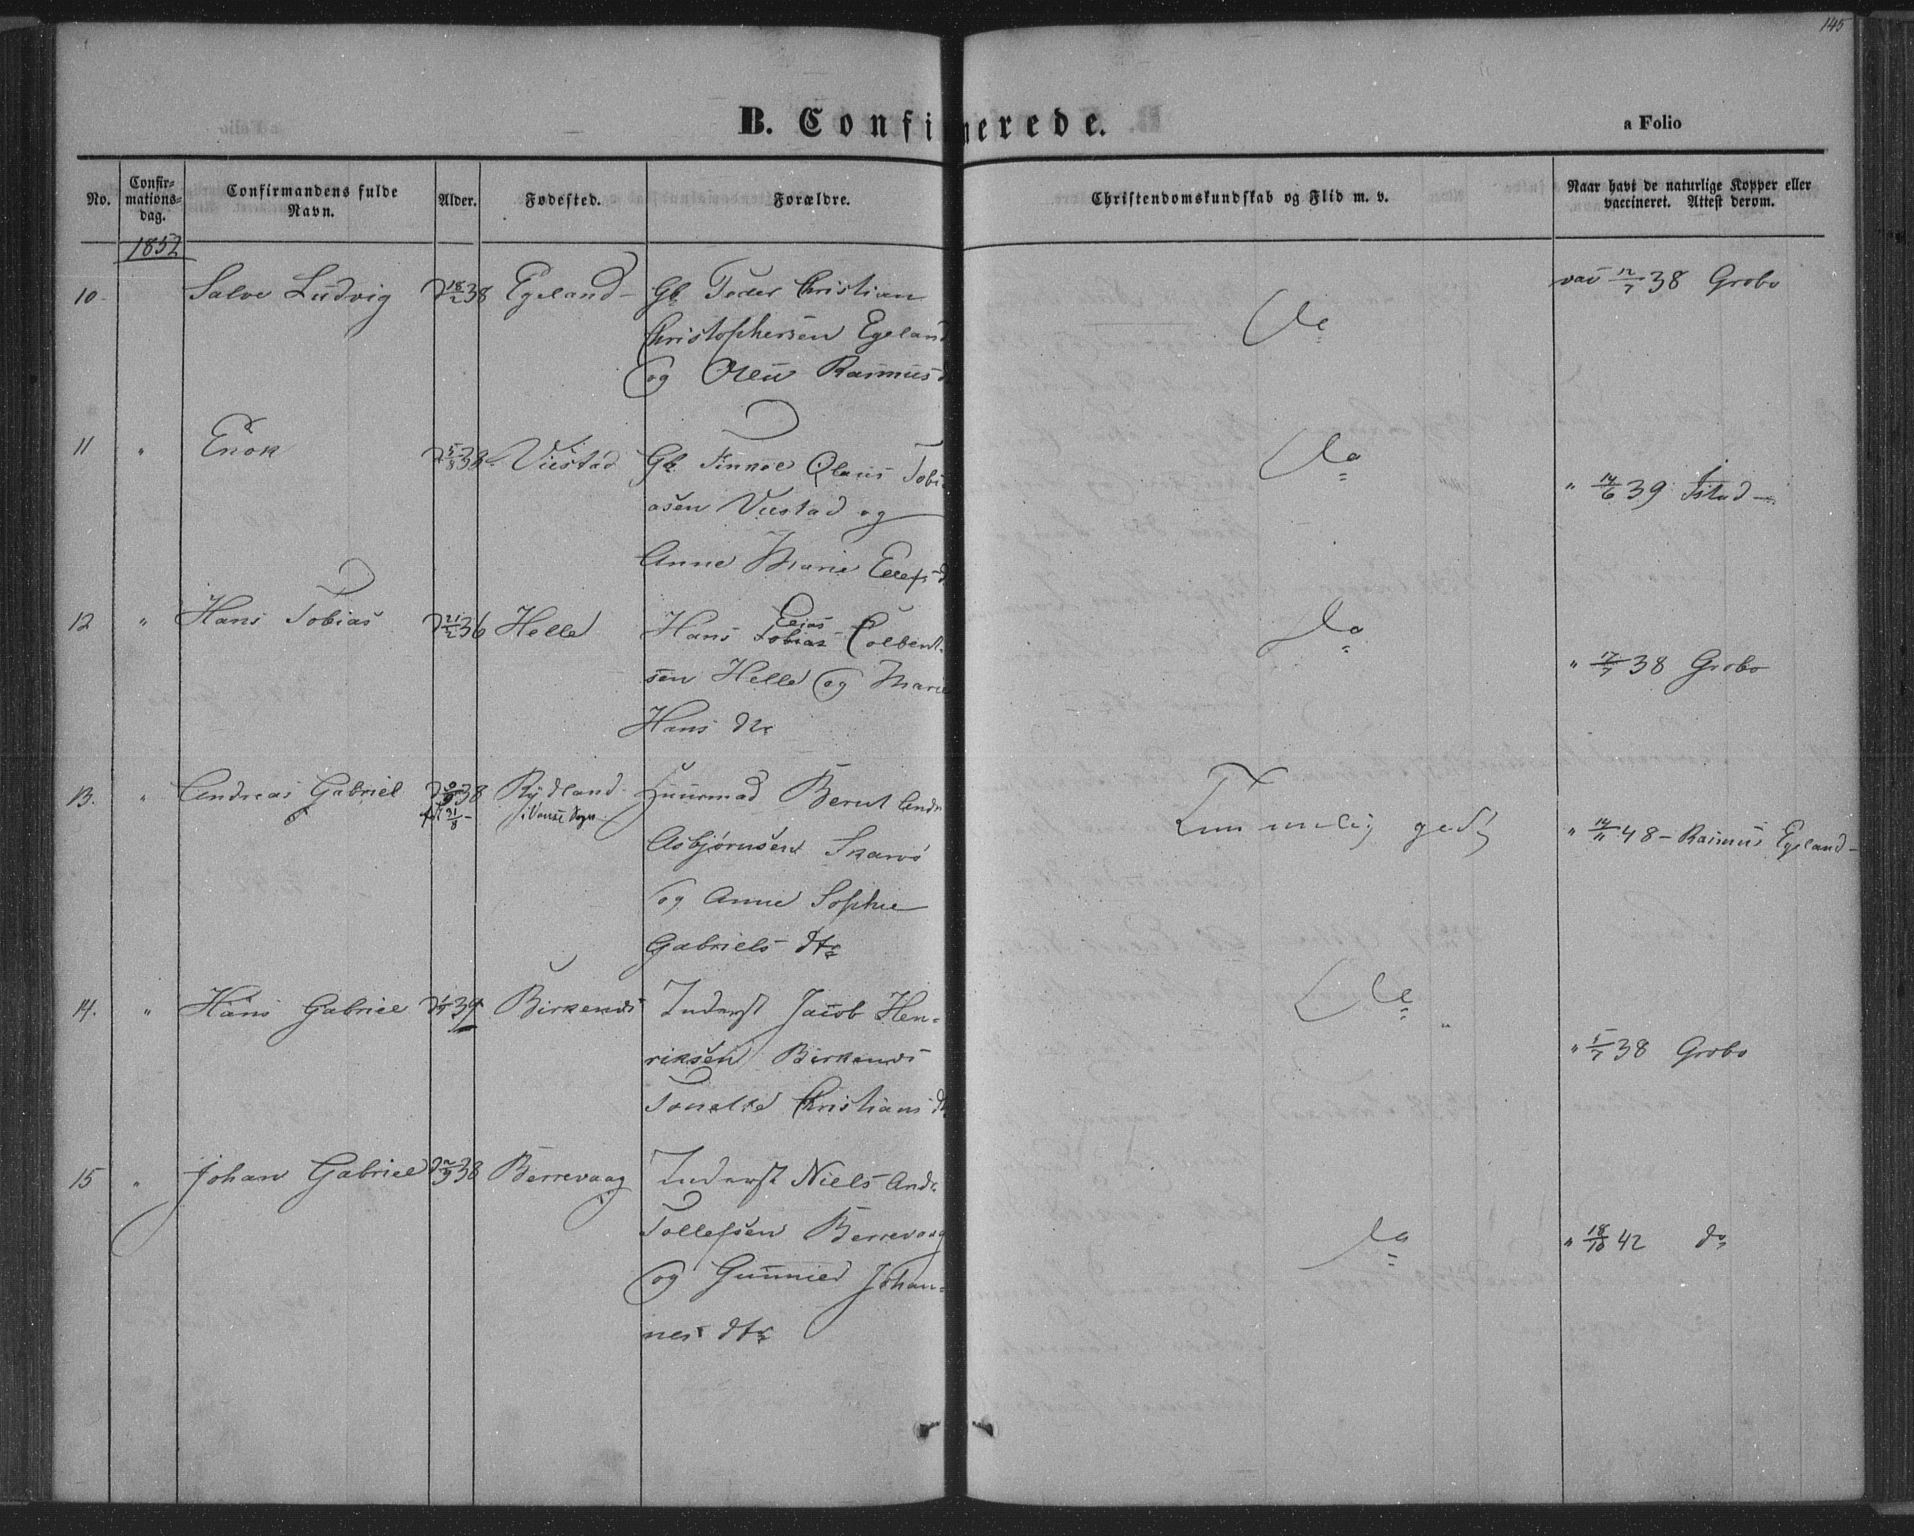 145
B. Confirmerede.
a Folio
No.
Confir-
mations-
dag.
Confirmandens fulde
Navn.
Alder.
Fødested.
Forældre.
Christendomskundskab og Flid m. v.
Naar havt de naturlige Kopper eller
vaccineret. Attest derom.
1852
10 Salve Ludvig 18/2 38 Egeland Gb. Peder Christian
Christophersen Egeland
og Rasmusd
do
12/7 38 Grobo
11 " Enok 38 Viestad Gb. Olaus Tobi
asen Viestad og
Anne Marie
do
" 14/6 39
12 " Hans Tobias 36 Helle Hans Tobias
sen Helle og Marie
Hans dtr
do
" 17/7 38 Grobo
13. " Andreas Gabriel 38 Rydland Huusmand Bernt Andr
i Vanse Sogn
Asbjørnsen
og Anne Sophie
Gabriels dtr
Temmelig god
" 14/11 48 – Rasmus Egeland
14. " Hans Gabriel 39 Birkenæs Inderst Jacob Hen-
riksen Birkenæs
Tonette Christians d
do
" 1/7 38 Grobo
15 " Johan Gabriel 38 Berrevaag Inderst Niels Andr
Tollefsen Berrevaag
og Gunnild Johan-
nes dtr
do
" 18/10 42 do